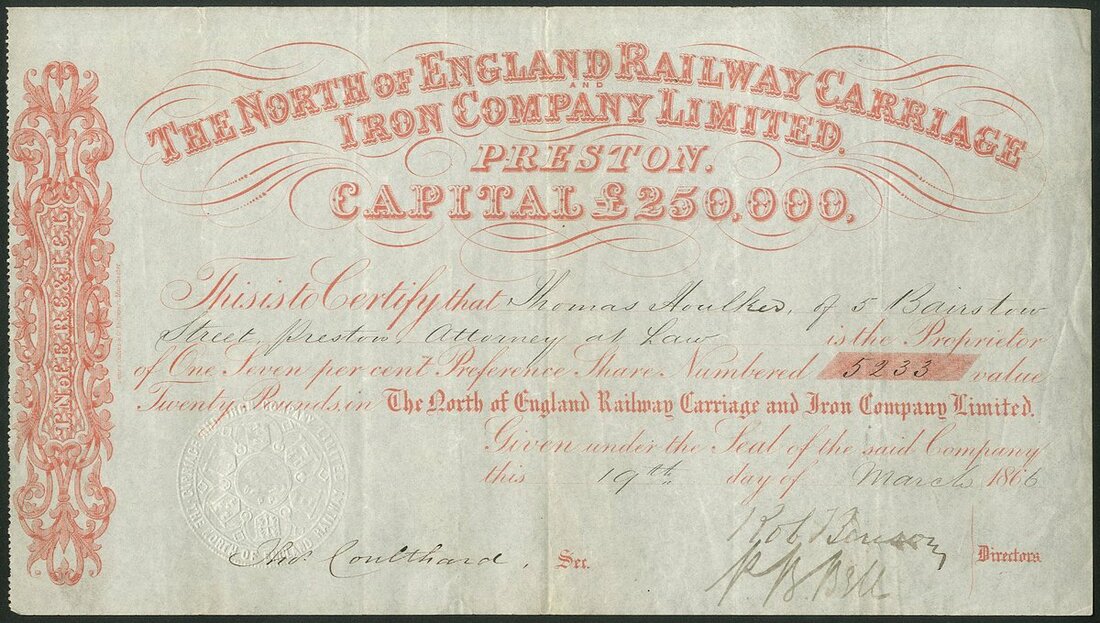 THE NORTH OF ENGLAND RAILWAY CARRIAGE
AND
IRON COMPANY LIMITED.
PRESTON.
CAPITAL £250,000,
This is to Certify that Thomas Houlker, of 5 Bairstow
Street, Preston, Attorney at Law is the Proprietor
of One Seven per cent Preference Share Numbered 5233 value
Twenty Pounds, in The North of England Railway Carriage and Iron Company Limited.
Given under the Seal of the said Company
this 19th day of March 1866
Thos. Coulthard, Sec.
Rob Benson
P. B. Bell
Directors